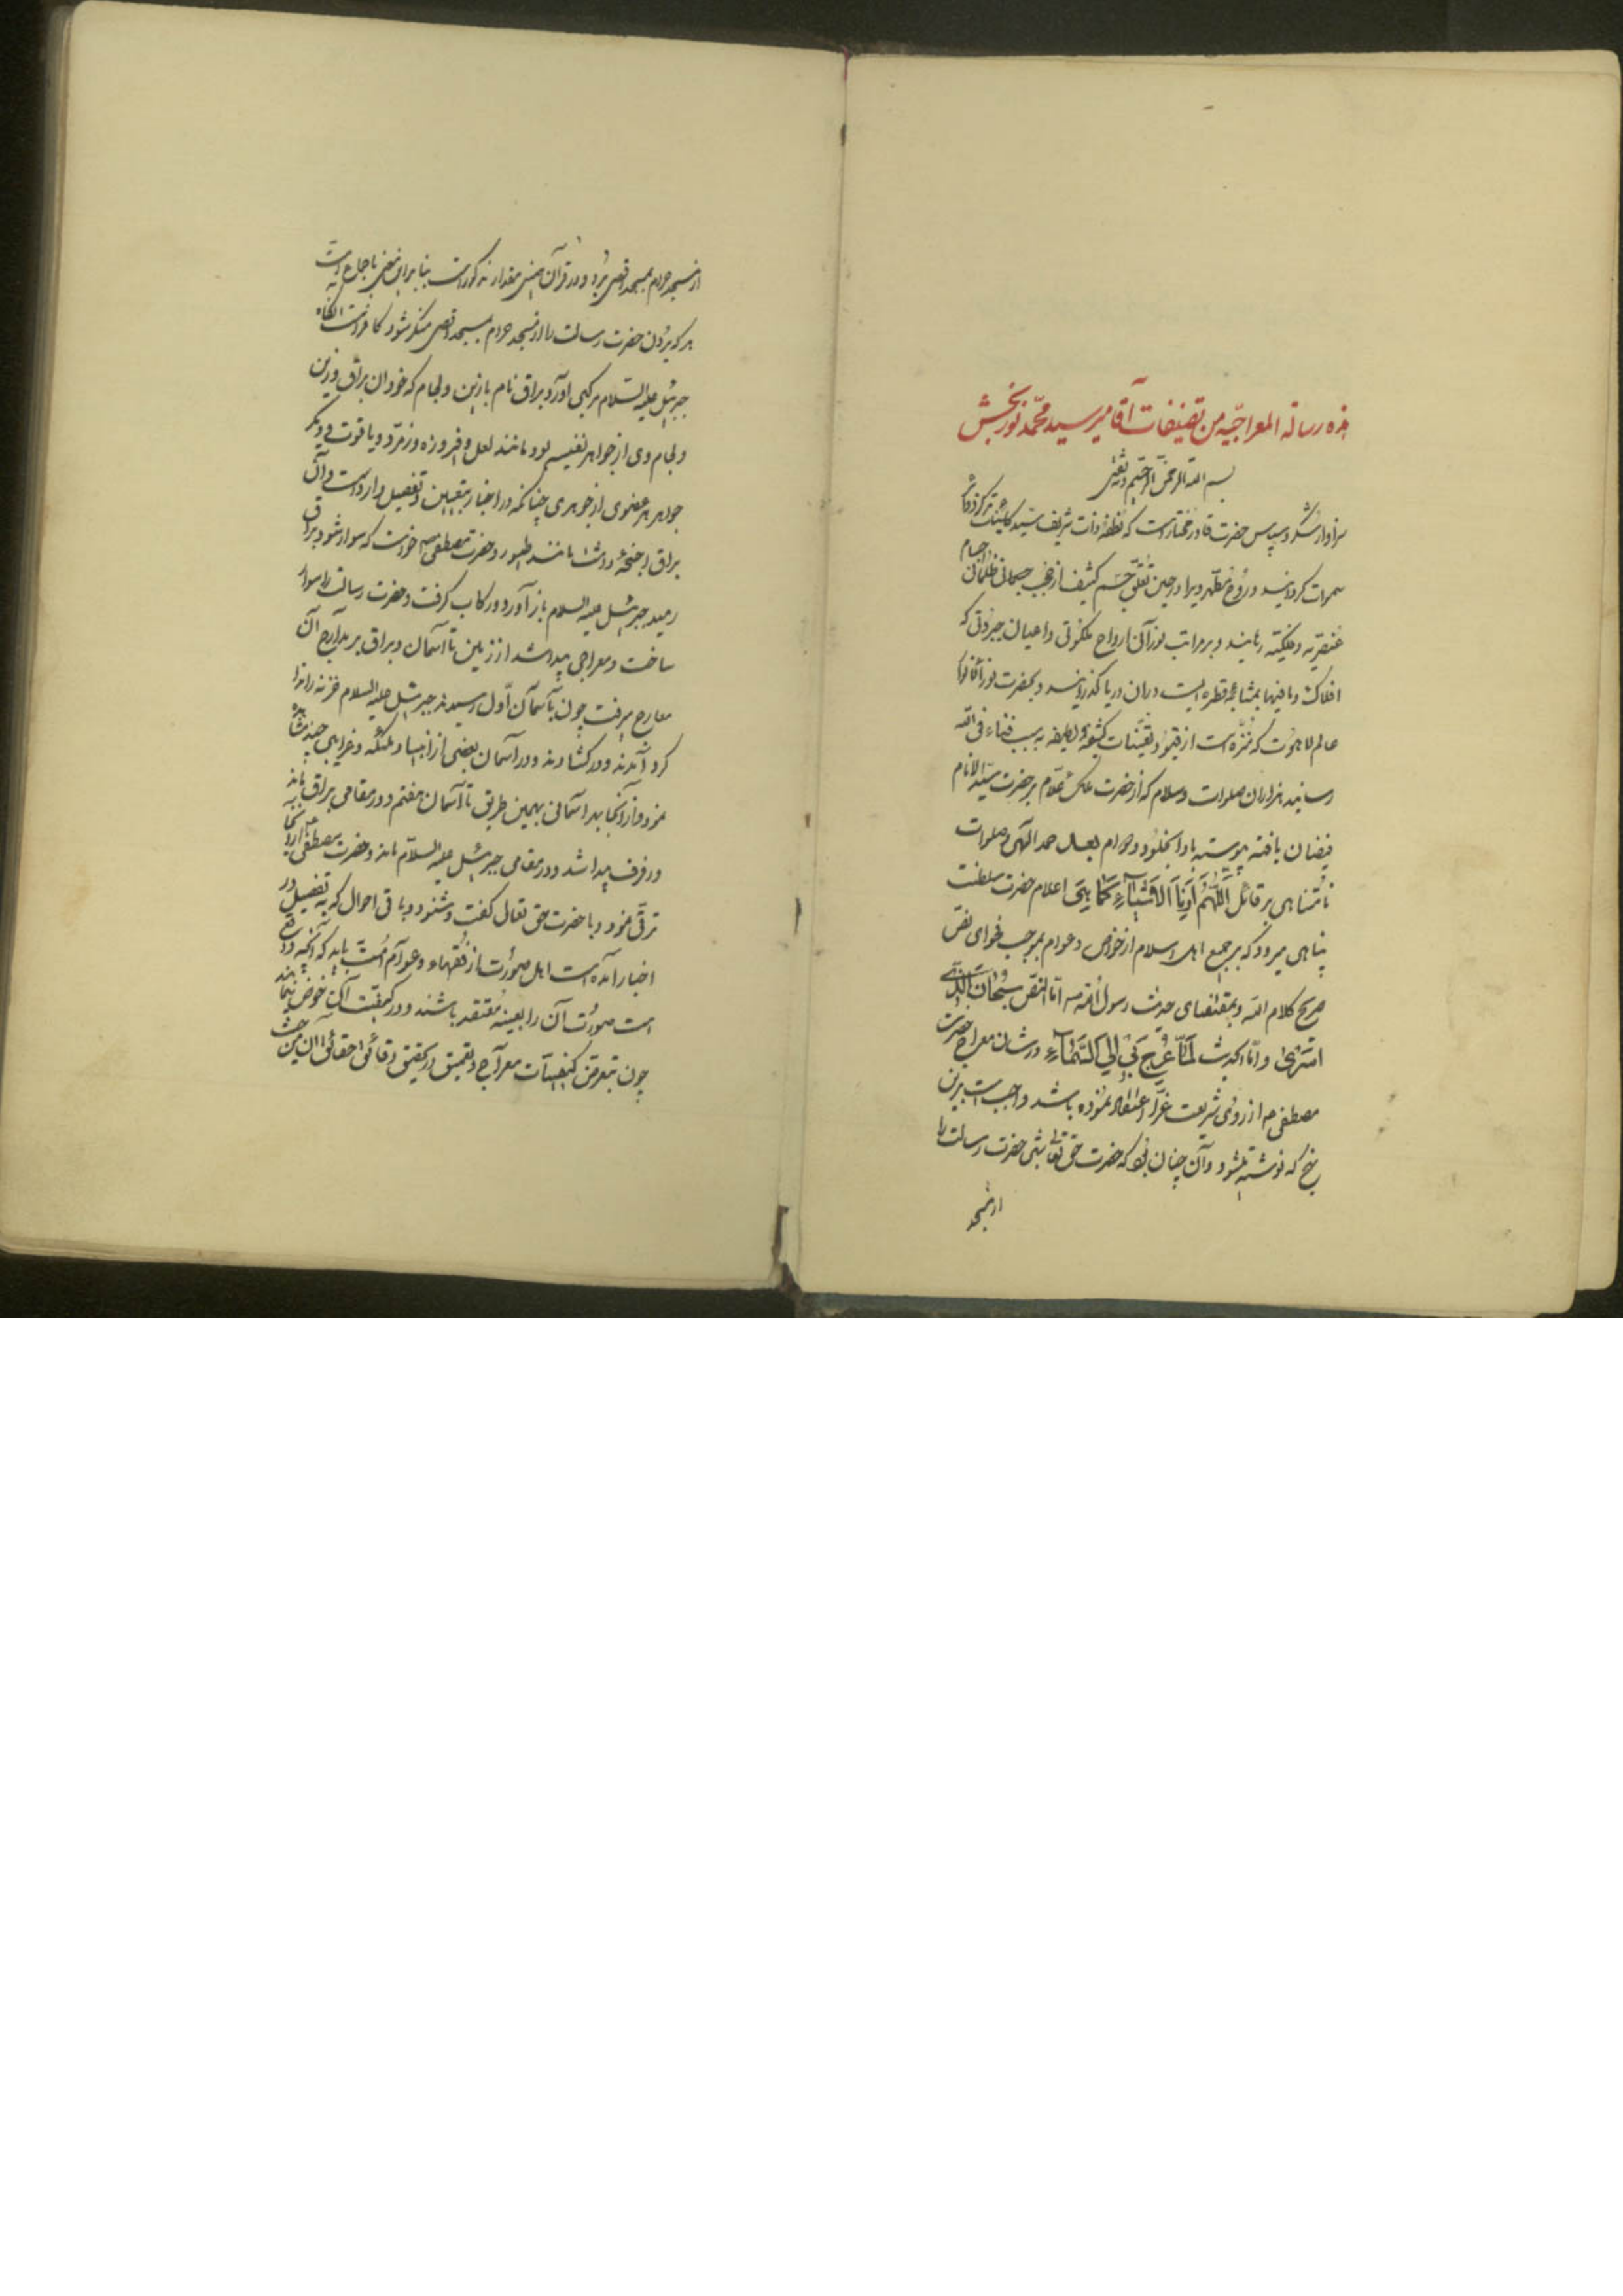 هذه رسالة المعراجیه من تصنیفات آقا میر سید محمد نوربخش
بسم الله الرحمن الرحیم وبه ثقتی
سزاوار شکر و سپاس حضرت قادر مختار است که نطفه ذات شریف سید کاینات
سموات کردانید و روح مطهر ویرا در حین تعلق جسم کثیف از حجب جسمانی ظلمانی اجسام
عنصریه و فلکیه رهانید و بر مراتب نورانی ارواح ملکوتی و اعیان جبروتی که
افلاک و مافیها بمثابه قطره ایست در ان دریا کذرانید و بحضرت نور
عالم لاهوت که منزه است از قیود تعینات کثیفه و لطیفه به سبب فناء فی الله
رسانید هزاران صلوات و سلام که از حضرت ملک علام بر حضرت سید الانام
فیضان یافته پیوسته باد بالخلود و دوام بعد از حمد الهی و صلوات
نامتناهی بر قائل اللهم ارنا الاشیاء کما هی اعلام حضرت سلطنت
پناهی میرود که بر جمیع اهل اسلام از خواص و عوام بموجب فحوای نص
صریح کلام الله و بمقتضای حدیث رسول الله ص اما النص سبحان الذی
اسری و اما الحدیث لما عرج بی الی السماء در شان معراج حضرت
مصطفی ص از روی شریعت غرا اعتقاد نموده باشد واجبست برین
نهج که نوشته میشود و آن چنان بود که حضرت حق تعالی شبی حضرت رسالت را
از مسجد
از مسجد حرام بمسجد اقصی برد و در قرآن همین مقدار مذکور است بنا برین معنی باجماع امت
هر که بردن حضرت رسالت را از مسجد حرام بمسجد اقصی منکر شود کافر است آنگاه
جبرئیل علیه السلام مرکبی آورد براق نام با زین و لجام که خود ان براق و زین
و لجام وی از جواهر نفیسه بود مانند لعل و فیروزه و زمرد و یاقوت و دیگر
جواهر هر عضوی از جوهری چنانکه در اخبار بتعیین و تفصیل وارد است و آن
براق اجنحه داشت مانند طیور و حضرت مصطفی ص خواست که سوار شود براق
رمید جبرئیل علیه السلام باز آورد و رکاب گرفت و حضرت رسالت را سوار
ساخت و معراجی پیدا شد از زمین تا آسمان و براق بر مدارج آن
معارج میرفت چون بآسمان اول رسیدند جبرئیل علیه السلام خزنه را ندا
کرد آمدند و در کشادند و در آسمان بعضی از انبیا و ملئکه و غرایبی چند مشاهده
نمود و از آنجا بهر آسمانی بهمین طریق تا آسمان هفتم و در مقامی براق بماند
و رفرف پیدا شد و در مقامی جبرئیل علیه السلام ماند و حضرت مصطفی از آنجا
ترقی نمود و با حضرت حق تعالی گفت و شنود و باقی احوال که به تفصیل در
اخبار آمده است اهل صورت از فقهاء و عوام امت باید که آنچه واقع
است صورت آن را بعینه معتقد باشند و در کیفیت آن خوض ننمایند
چون تعرض کیفیات معراج و تعمیق در تحقیق دقائق حقائق آن من حیث